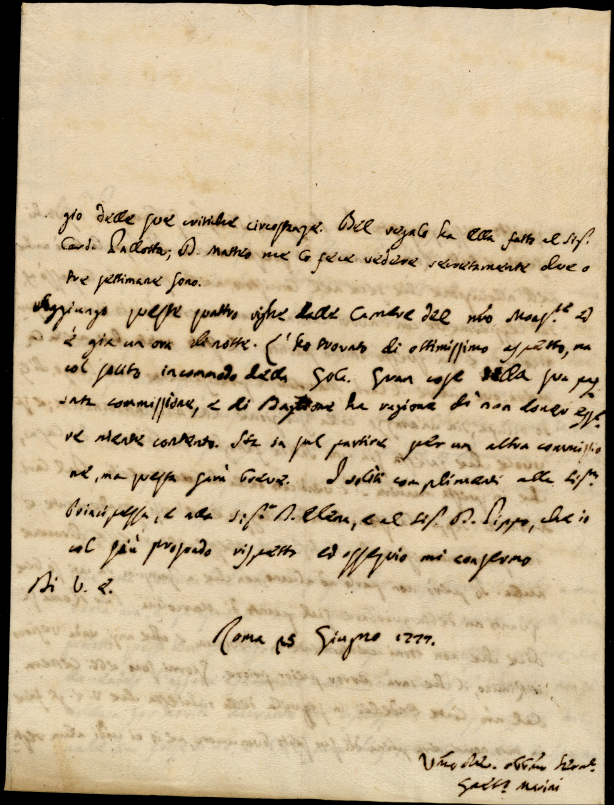 gio delle sue critiche circostanze. Del regalo ha ella fatto al Sig.
Card. Pallotta; D. Matteo me lo fece vedere secretamente due o
tre settimane sono.
Aggiungo queste quattro righe dalle Camere del mio Monsig.re ed
è già un'ora di notte. L'ho trovato di ottimissimo aspetto, ma
col solito incommodo della Gola. Gran cose della sua pas
sata commissione, e di ha ragione di non dover esse
re niente contento. Sta sul partire per un altra commissio
ne, ma questa sarà breve. I soliti complimenti alla Sig.ra
Principessa, e alla Sig.ra D. Elena, e al Sig. D. Pippo, che io
col più profondo rispetto ed ossequio mi confermo
Di V. E.
Roma 25 Giugno 1777.
Umo Devo. obbmo Servre
Gaet.o Marini